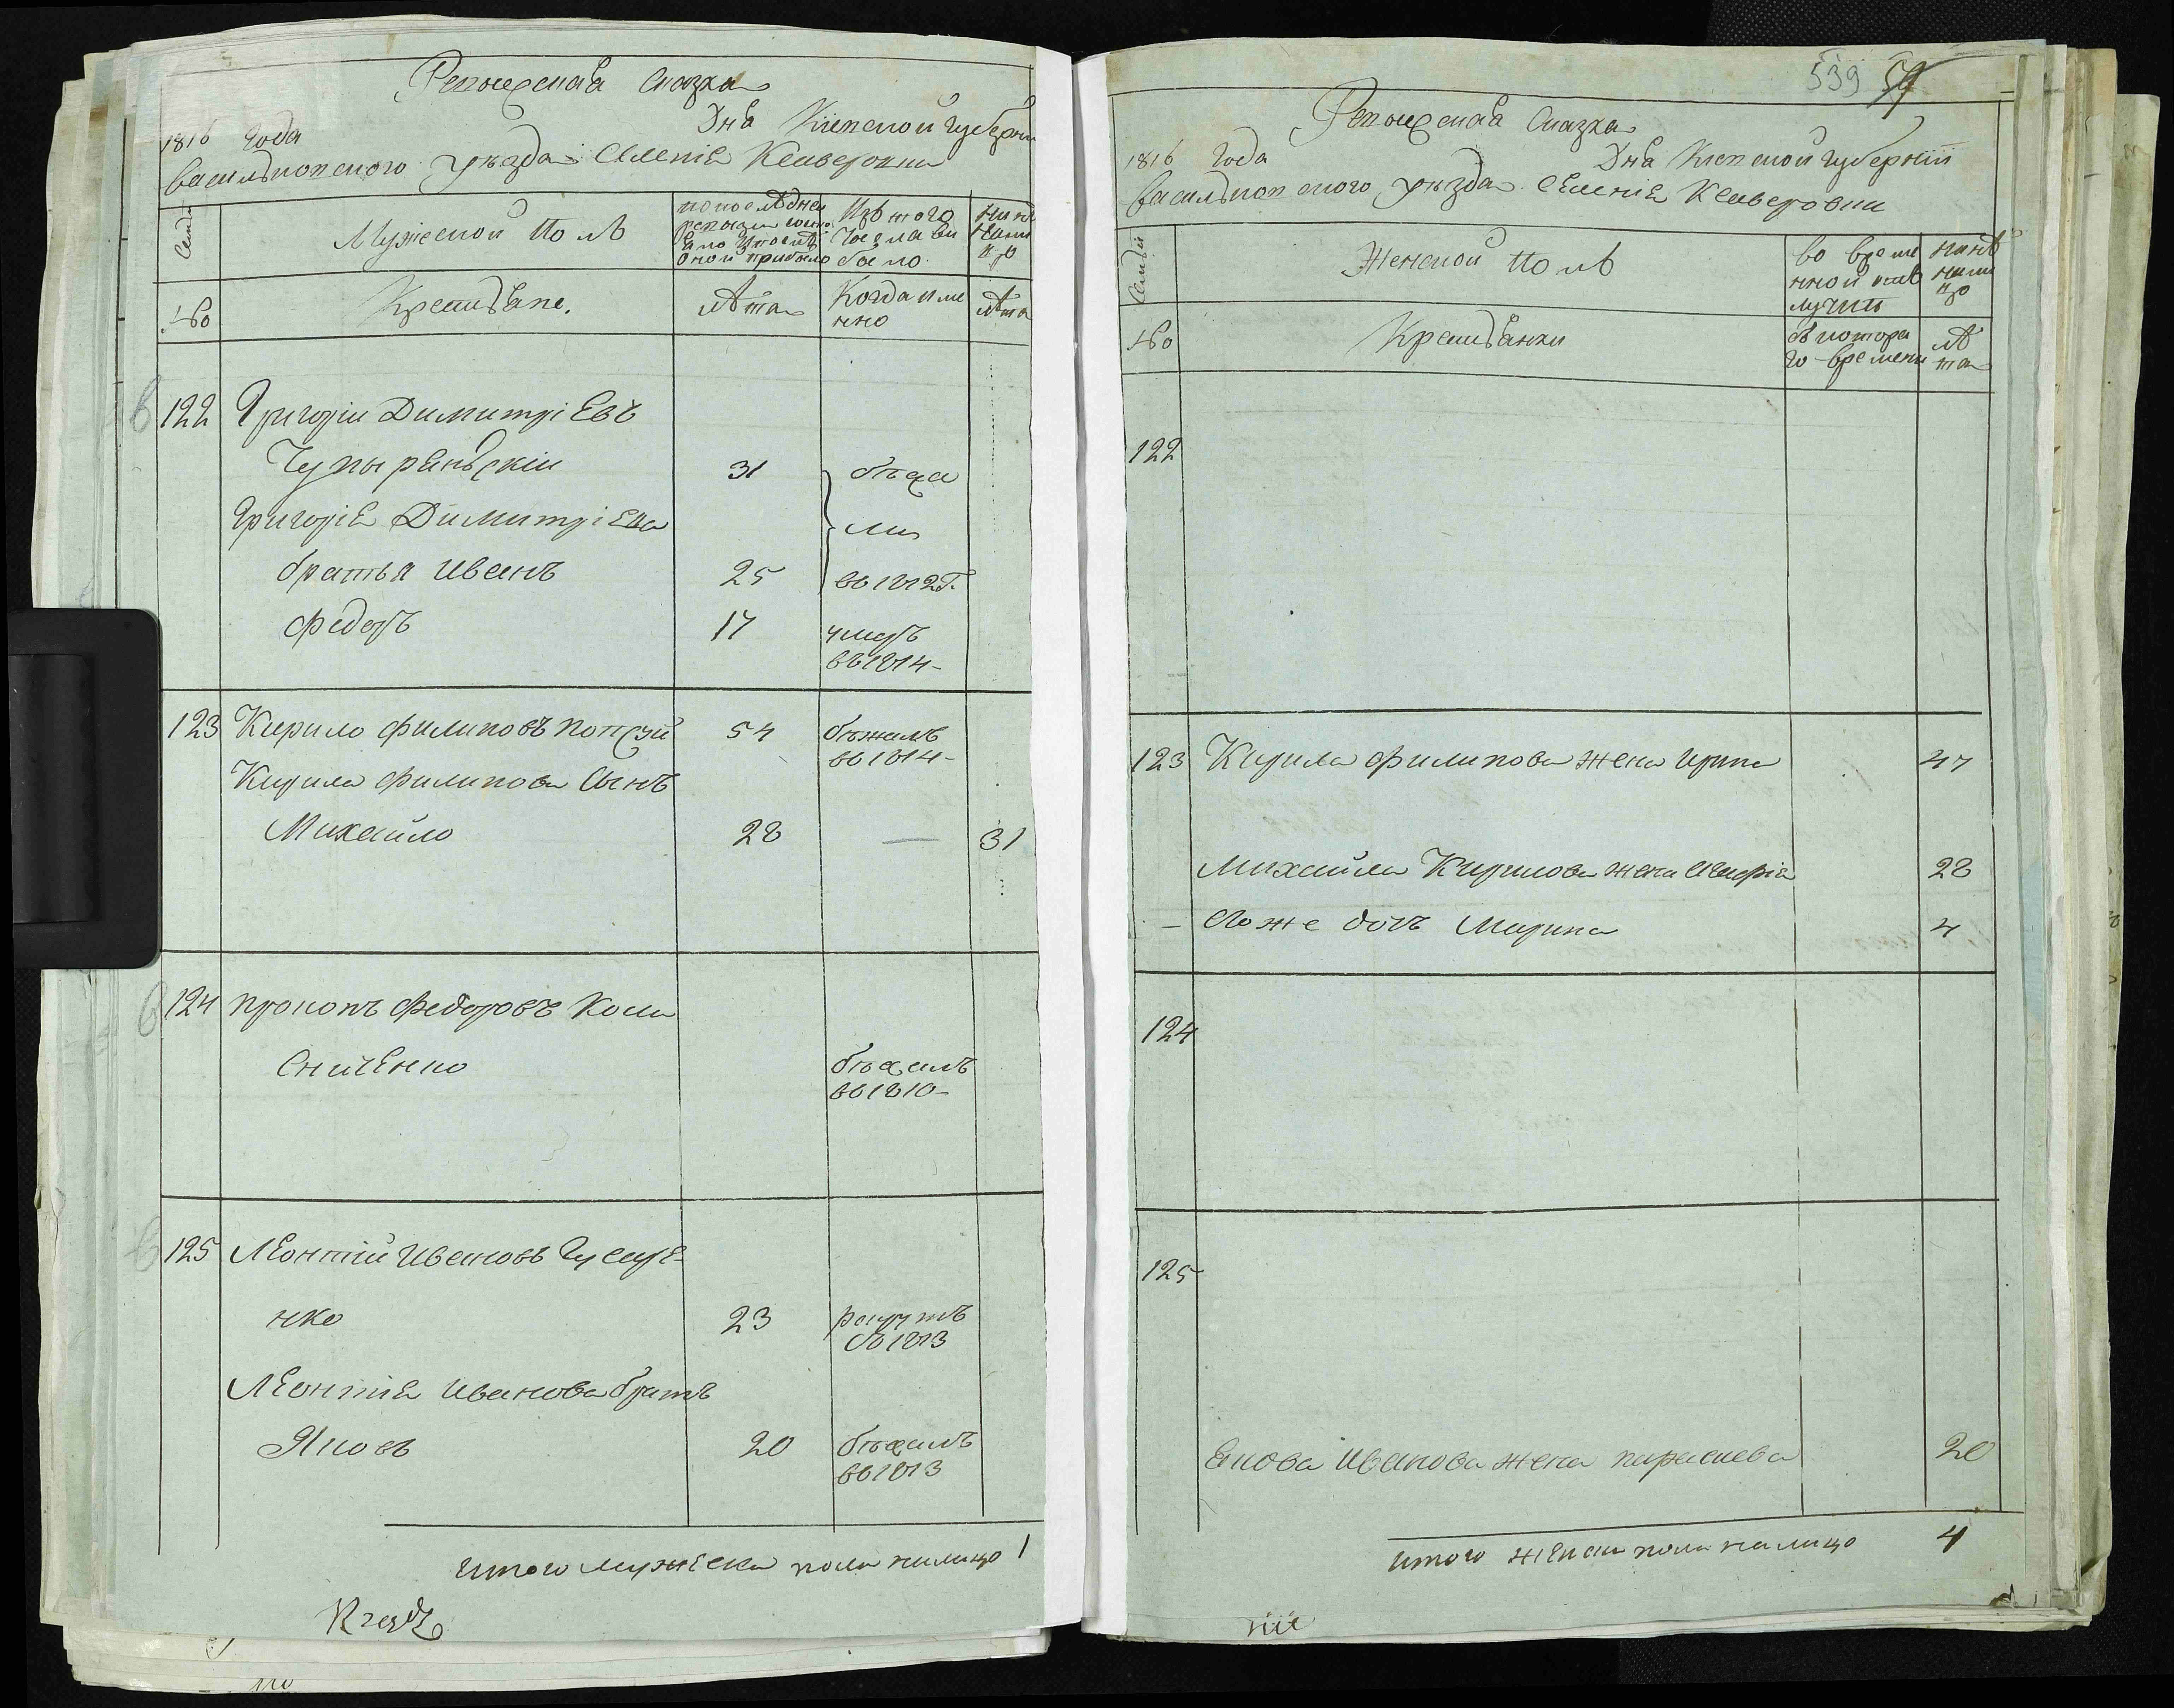 Ревизская Сказка
1816 года Дня Киевской Губернии
Васильковского уезда Селения Ксаверовки
Семьи
Мужеской Полъ
По последней ревизии состояло и после оной прибыло
Изъ того числа выбыло
Ныне на лицо
№
Крестьяне.
Лѣта
Когда именно
Лѣта
122 Григорій Димитріевъ
31 бѣжа
Григорія Димитріева
ли
братья Иванъ 25 въ 1812 г.
Федоръ 17 умеръ
въ 1814-
123 Кирило Филиповъ 54 бѣжалъ
въ 1814-
Кирила Филипова Сынъ
Михайло 28 — 31
124 Прокопъ Федоровъ Кола
сниченко бѣжалъ
въ 1810-
125 Леонтій Ивановъ Гусаре-
нко 23 рекрутъ
въ 1813
Леонтія Иванова братъ
Яковъ 20 бѣжалъ
въ 1813
Итого мужеска пола налицо 1
539
Ревизская Сказка
1816 года Дня Киевской губерніи
Васильковского уезда Селенія Ксаверовки
Семьи
Женской Полъ
Во временной отлучке
Ныне на лицо
№
Крестьянки
Съ которого времени
Лѣта
122
123 Кирила Филипова жена Ирина 47
Михайла Кирилова жена 28
- Его же дочь Марина 4
124
125
Якова Иванова жена Параскева 20
Итого женска пола налицо 4